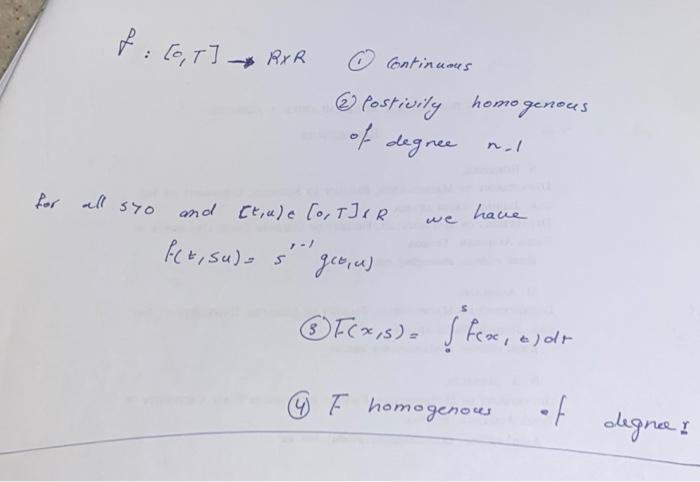 f : [0,T] → R×R ① Continuous
② Postivily homogenous
of degree n-1
for all s>0 and (t,u)∈ [0,T]×R we have
f(t,su)= s^{r-1} g(t,u)
③ F(x,s)= ∫_0^s f(x,t)dt
④ F homogenous of degree :